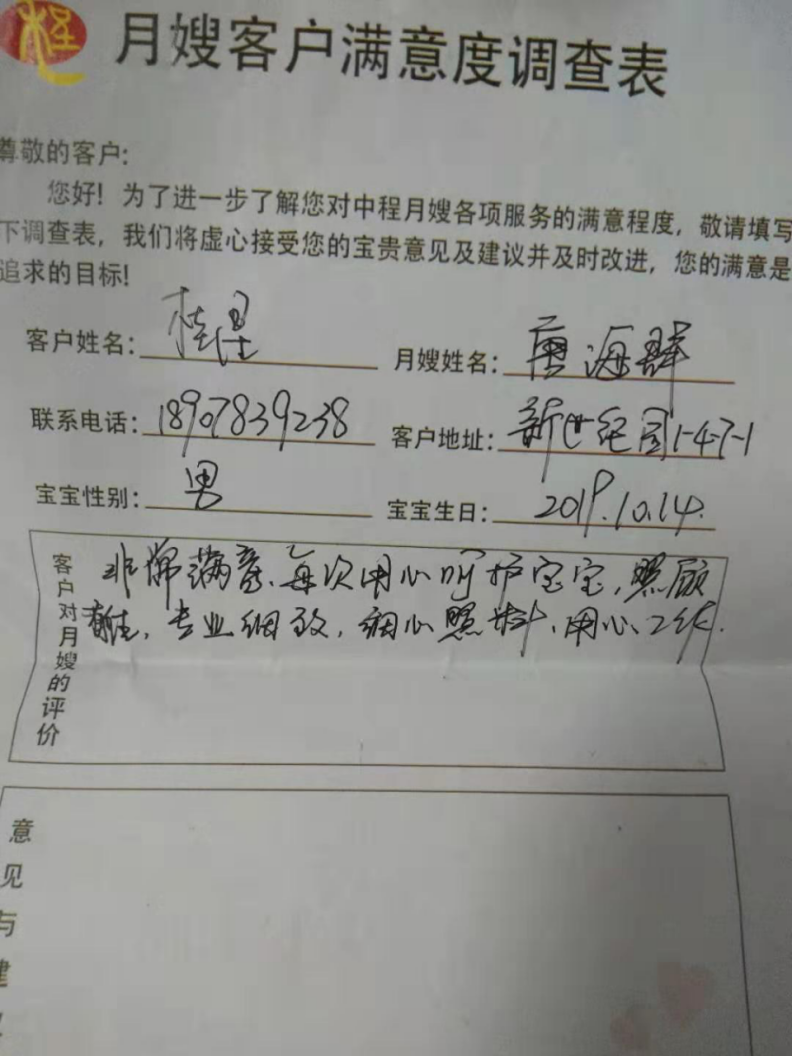 程
月嫂客户满意度调查表
尊敬的客户:
您好! 为了进一步了解您对中程月嫂各项服务的满意程度, 敬请填写
下调查表, 我们将虚心接受您的宝贵意见及建议并及时改进, 您的满意是
追求的目标!
客户姓名: 月嫂姓名: 唐海群
联系电话: 18907839238 客户地址: 新世纪园1-4-7-1
宝宝性别: 男 宝宝生日: 2019.10.14.
客户对月嫂的评价
非常满意、每次用心呵护宝宝, 照顾
专业细致, 细心照料、用心工作.
意见与建